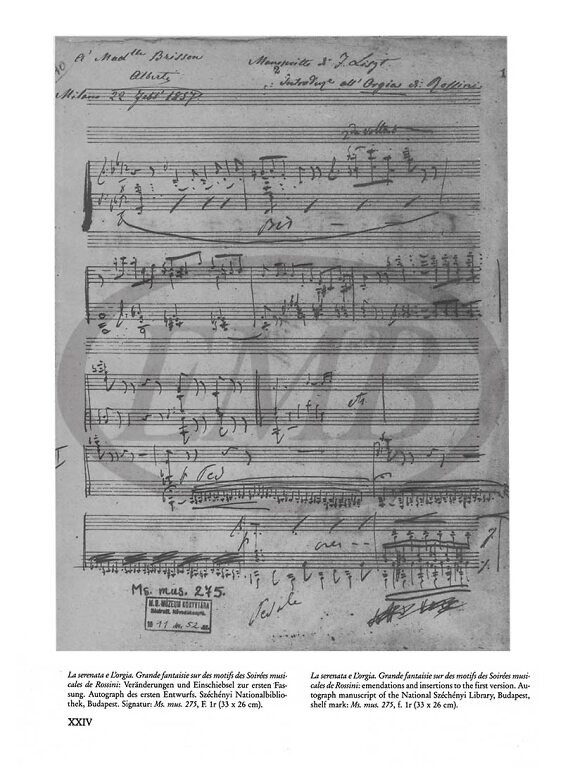 A' Mad^lle Brisson
Manoscritto di F. Liszt
1
Alberti
Introduz. all' Orgia di Rossini
Milano 22 Febb 1837
Bis
EMB
etc
I
p Ped
p
cres - - -
Ms. mus. 275.
M. N. MÚZEUM KÖNYVTÁRA
11 52
Pedale
La serenata e L'orgia. Grande fantaisie sur des motifs des Soirées musi-
cales de Rossini: Veränderungen und Einschiebsel zur ersten Fas-
sung. Autograph des ersten Entwurfs. Széchényi Nationalbiblio-
thek, Budapest. Signatur: Ms. mus. 275, F. 1r (33 x 26 cm).
La serenata e L'orgia. Grande fantaisie sur des motifs des Soirées musi-
cales de Rossini: emendations and insertions to the first version. Au-
tograph manuscript of the National Széchényi Library, Budapest,
shelf mark: Ms. mus. 275, f. 1r (33 x 26 cm).
XXIV